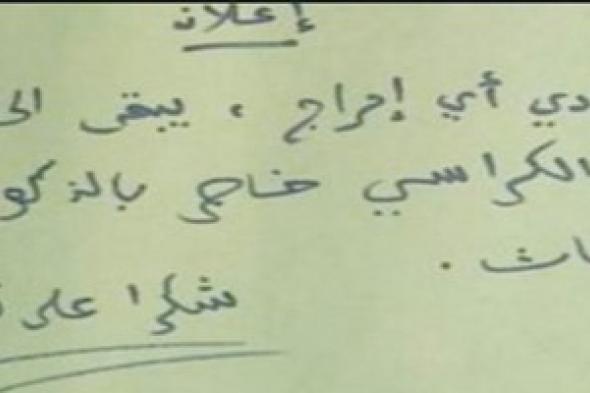 إعلان
دي أي إحراج ، يبقى الح
الكراسي خاص بالذكو
اث .
شكرا على ت